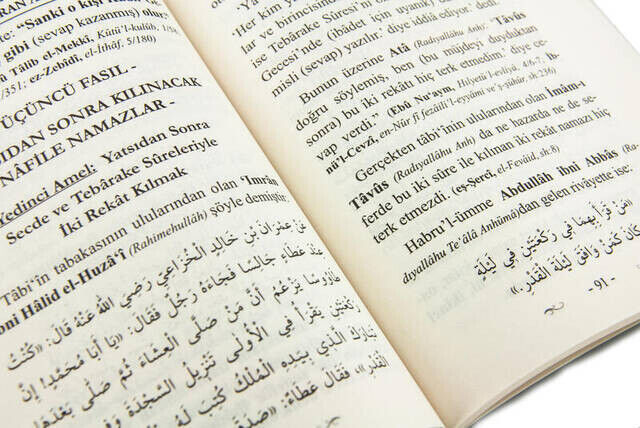 "Sanki o kişi Kadir
gibi (sevap kazanmış) olur."
Tâlib el-Mekkî, Kûtü'l-kulûb, 1/
/351; ez-Zebîdî, el-İthâf, 5/180)
ÜÇÜNCÜ FASIL -
SIDAN SONRA KILINACAK
NÂFİLE NAMAZLAR -
Yedinci Amel: Yatsıdan Sonra
Secde ve Tebârake Sûreleriyle
İki Rekât Kılmak
Tâbi'în tabakasının ulularından olan 'Imrân
ibni Hâlid el-Huzâ'î (Rahimehullâh) şöyle demiştir:
عَنْ عِمْرَانَ بْنِ خَالِدٍ الْخُزَاعِيِّ رَضِيَ اللهُ عَنْهُ قَالَ: «كُنْتُ
عِنْدَ عَطَاءٍ جَالِسًا فَجَاءَهُ رَجُلٌ فَقَالَ: «يَا أَبَا مُحَمَّدٍ! إِنَّ
طَاوُوسًا يَزْعُمُ أَنَّ مَنْ صَلَّى الْعِشَاءَ ثُمَّ صَلَّى بَعْدَهَا
رَكْعَتَيْنِ يَقْرَأُ فِي الْأُولَى تَنْزِيلُ السَّجْدَةِ وَفِي
تَبَارَكَ الَّذِي بِيَدِهِ الْمُلْكُ كُتِبَ لَهُ
الْقَدْرِ»، فَقَالَ عَطَاءٌ: «صَدَقَ
Her kim yatsı
lar ve birincisinde
ise Tebârake Sûresi'n
Gecesi'nde (ibâdet için uyanık)
misli (sevap) yazılır.' diye iddiâ ediyor.' dedi.
Bunun üzerine Atâ (Radıyallâhu Anh): 'Tâvûs
doğru söylemiş, ben (bu müjdeyi duyduktan
sonra) bu iki rekâtı hiç terk etmedim.' diye ce-
vap verdi." (Ebû Nu'aym, Hilyetü'l-evliyâ, 4/6,7; ib-
nü'l-Cevzî, en-Nûr fî fezâili'l-eyyâmi ve'ş-şühûr, sh:236)
Gerçekten tâbi'în'in ulularından olan İmâm-ı
Tâvûs (Radıyallâhu Anh) da ne hazarda ne de se-
ferde bu iki sûre ile kılınan iki rekât namazı hiç
terk etmezdi. (eş-Şercî, el-Fevâid, sh:8)
Habru'l-ümme Abdullâh ibni Abbâs (Ra-
dıyallâhu Te'âlâ Anhümâ)dan gelen rivayette ise:
«مَنْ قَرَأَ بِهِمَا فِي رَكْعَتَيْنِ فِي لَيْلَةٍ
كَانَ كَمَنْ وَافَقَ لَيْلَةَ الْقَدْرِ.»
- 91 -